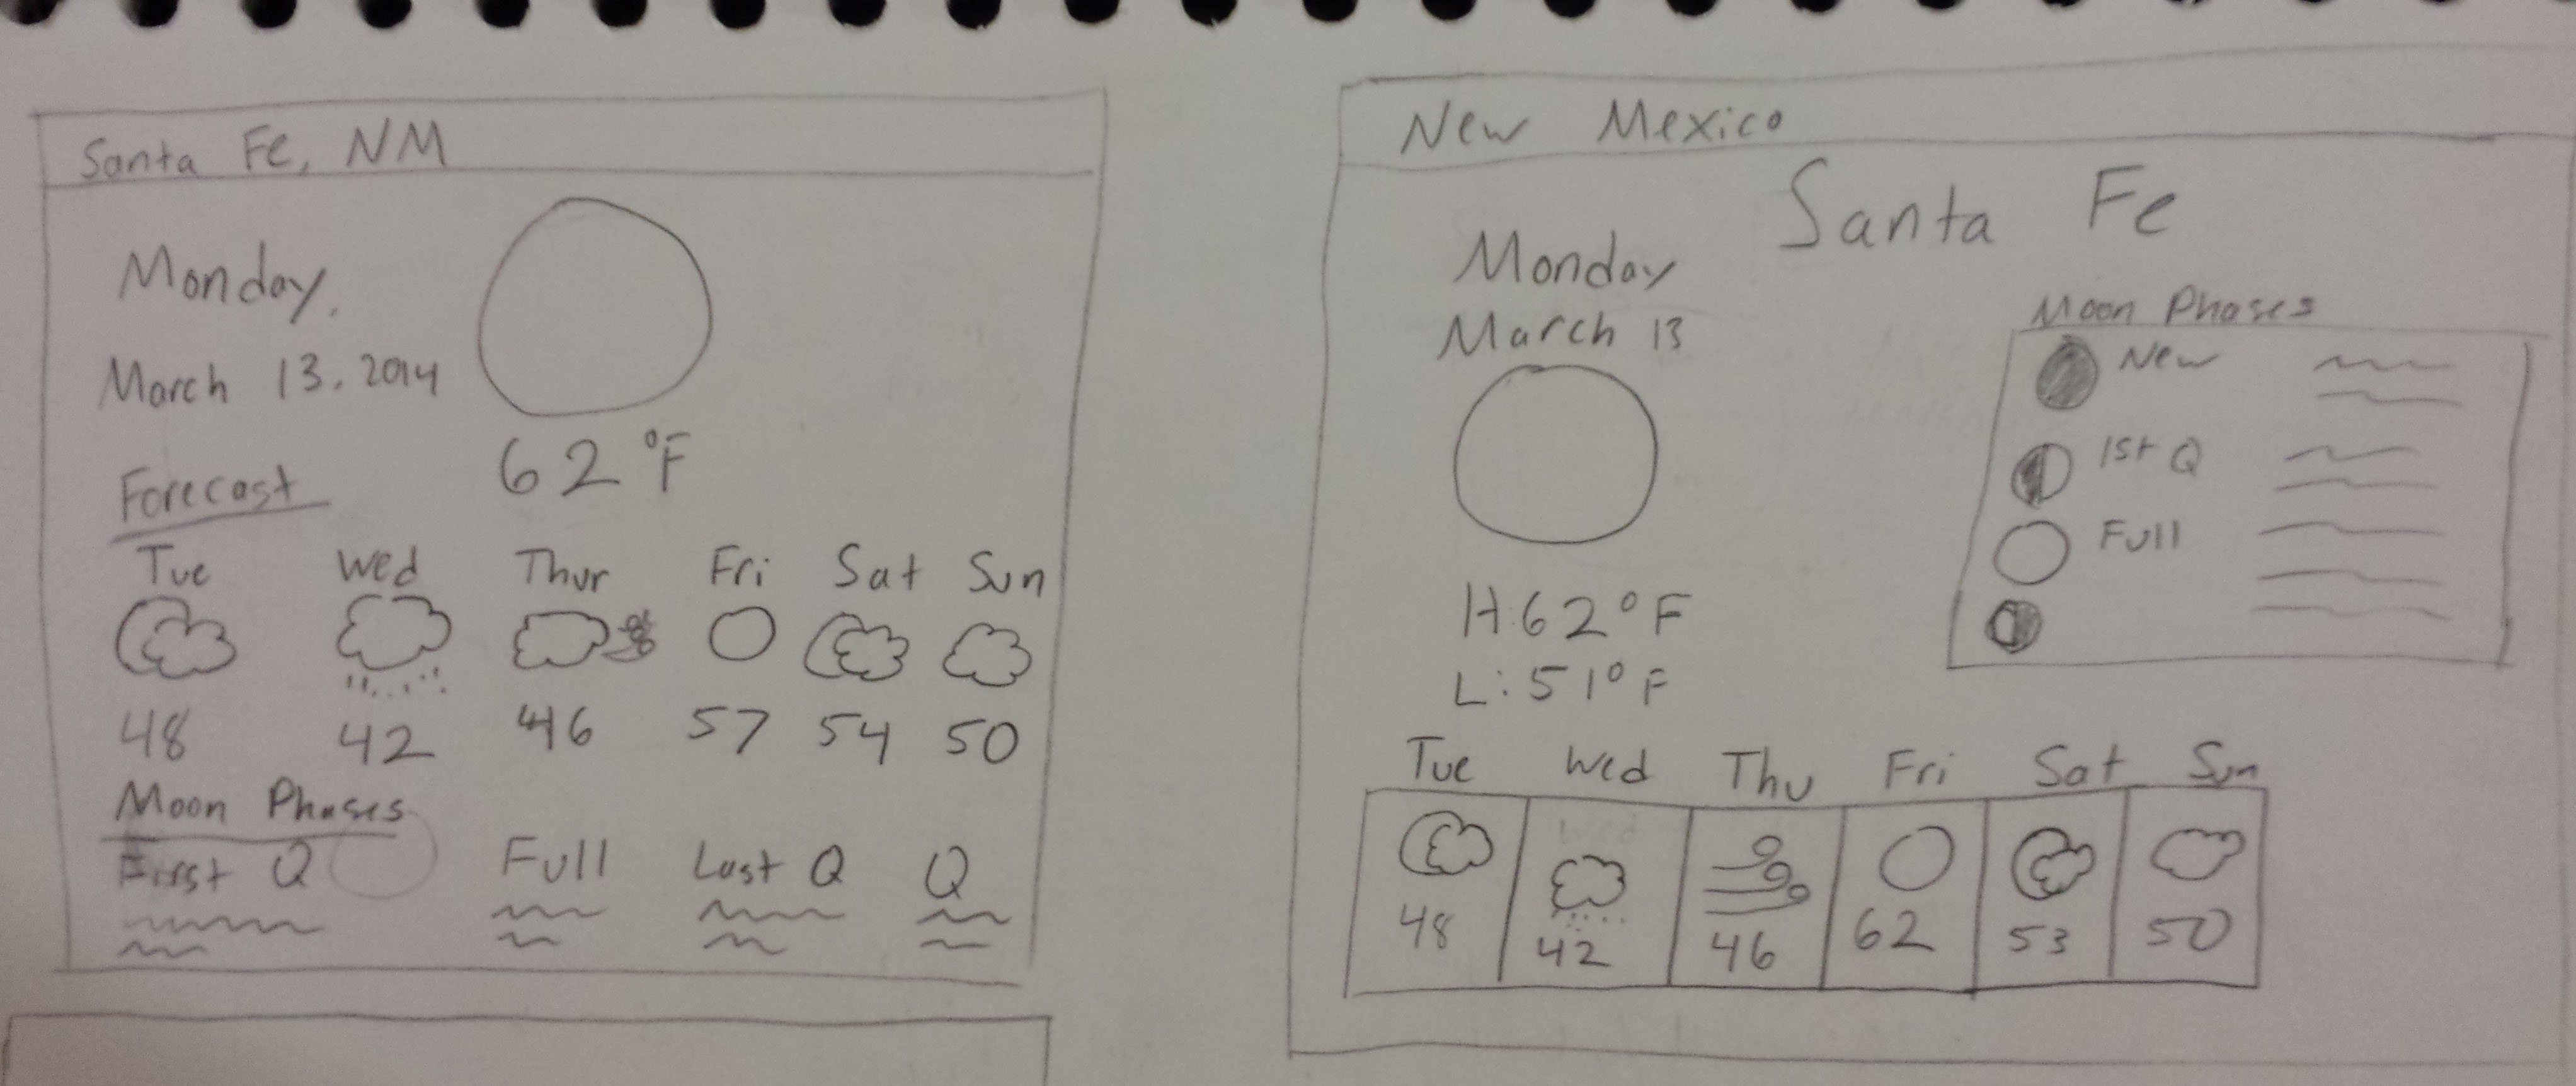 Santa Fe, NM
Monday,
March 13. 2014
62 °F
Forecast
Tue Wed Thur Fri Sat Sun
48 42 46 57 54 50
Moon Phases
First Q Full Last Q Q
New Mexico
Santa Fe
Monday
March 13
H:62°F
L:51°F
Moon Phases
New
1st Q
Full
Tue Wed Thu Fri Sat Sun
48 42 46 62 53 50